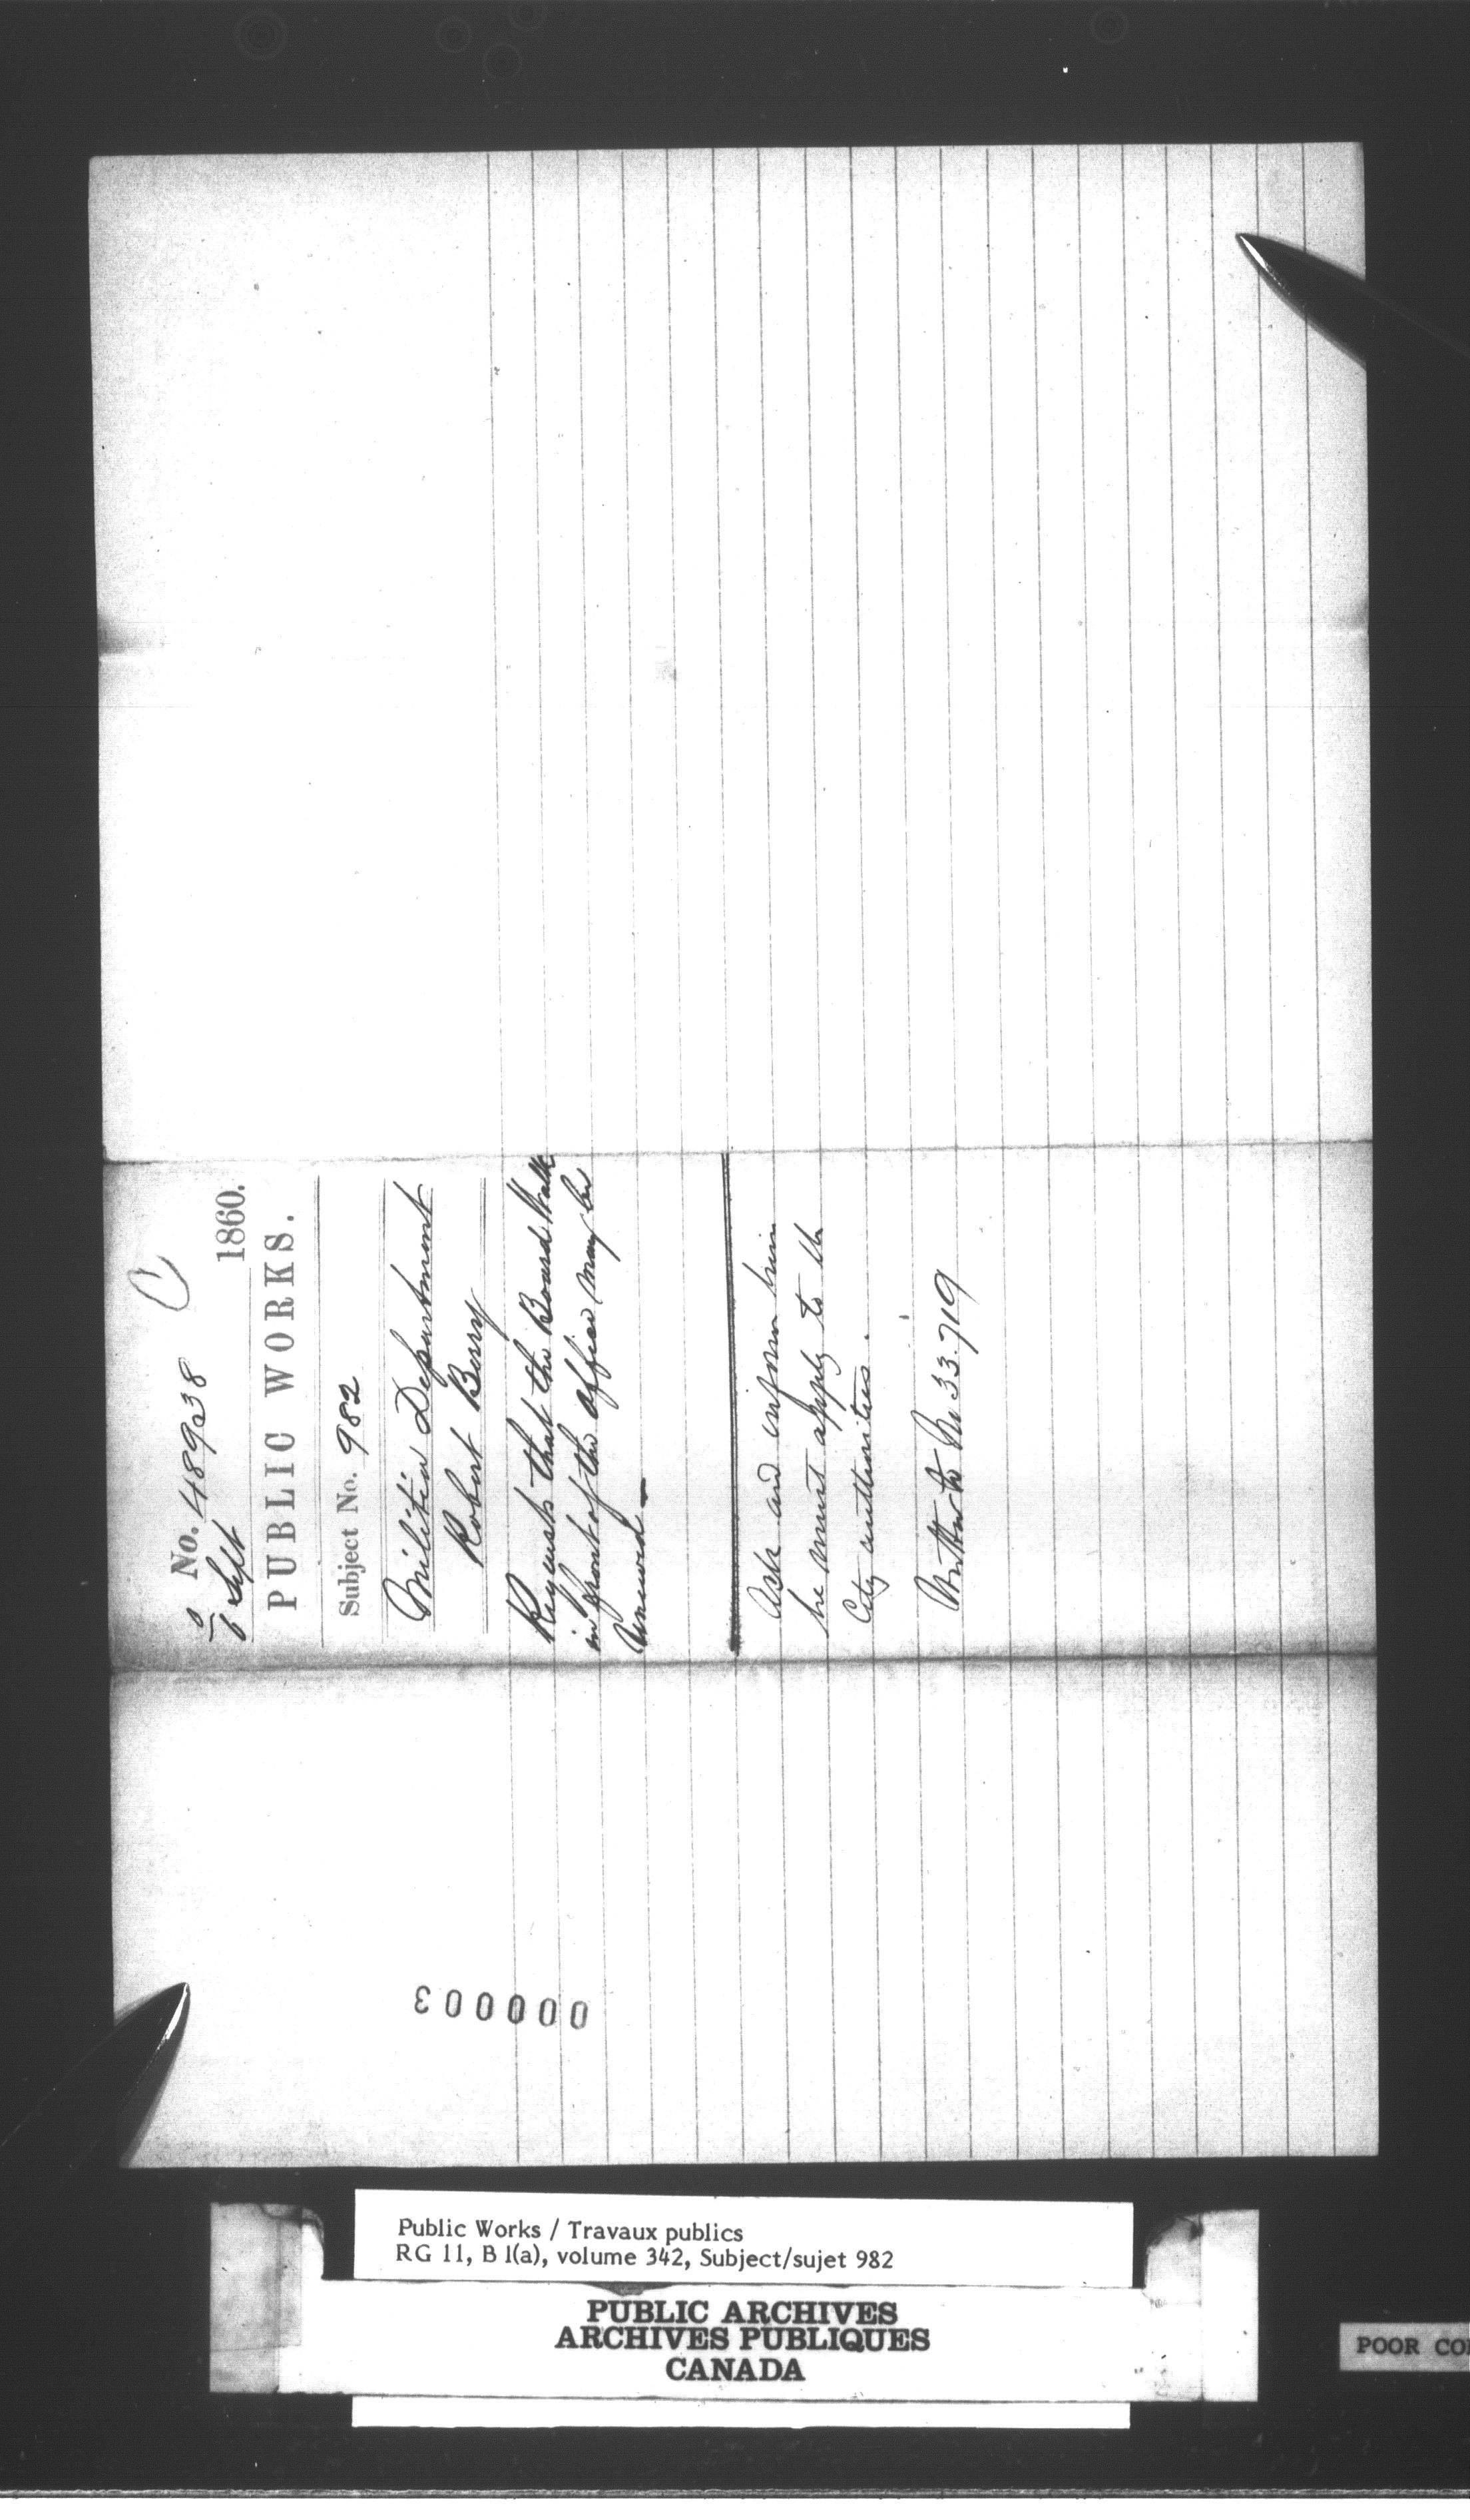 No. 48938
6 Sept 1860.
PUBLIC WORKS.
Subject No. 982
Militia Department
Robert Berry
Requests that the Board Walk
in front of the office may be
renewed
Ack and inform him
he must apply to the
City authorities.
No 33.719
000003
Public Works / Travaux publics
RG 11, B 1(a), volume 342, Subject/sujet 982
PUBLIC ARCHIVES
ARCHIVES PUBLIQUES
CANADA
POOR CO